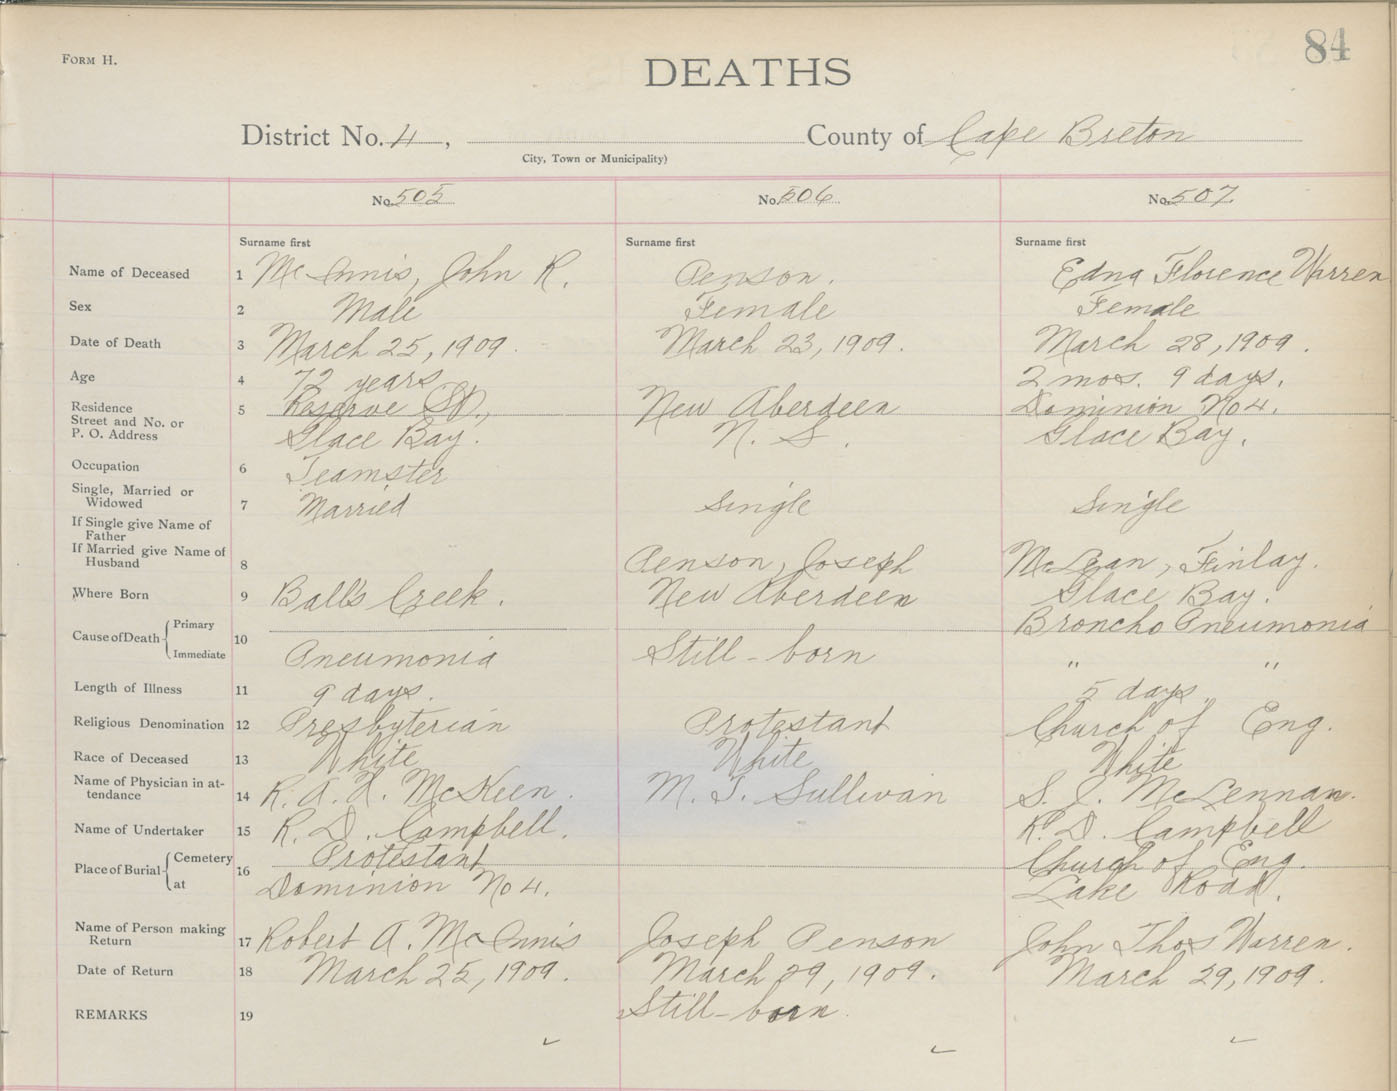 FORM H.
84
DEATHS
District No. 4, County of Cape Breton
City, Town or Municipality)
No. 505 No. 506 No. 507
Surname first Surname first Surname first
Name of Deceased 1 McInnis, John R. Penson. Edna Florence Warren
Sex 2 Male Female Female
Date of Death 3 March 25, 1909. March 23, 1909. March 28, 1909.
Age 4 72 years 2 mos. 9 days.
Residence 5 Reserve St., New Aberdeen Dominion No 4.
Street and No. or
P. O. Address Glace Bay. N. S. Glace Bay.
Occupation 6 Teamster
Single, Married or
Widowed 7 Married Single Single
If Single give Name of
Father
If Married give Name of
Husband 8 Penson, Joseph McLean, Finlay.
Where Born 9 Ball's Creek. New Aberdeen Glace Bay.
Cause of Death { Primary 10 Broncho Pneumonia
Immediate Pneumonia Still-born " "
Length of Illness 11 9 days. 5 days.
Religious Denomination 12 Presbyterian Protestant Church of Eng.
Race of Deceased 13 White White White
Name of Physician in at-
tendance 14 R. A. H. McKeen. M. T. Sullivan S. J. McLennan.
Name of Undertaker 15 R. D. Campbell. R. D. Campbell
Place of Burial { Cemetery 16 Protestant Church of Eng.
at Dominion No 4. Lake Road.
Name of Person making
Return 17 Robert A. McInnis Joseph Penson John Thos Warren.
Date of Return 18 March 25, 1909. March 29, 1909. March 29, 1909.
REMARKS 19 Still-born.